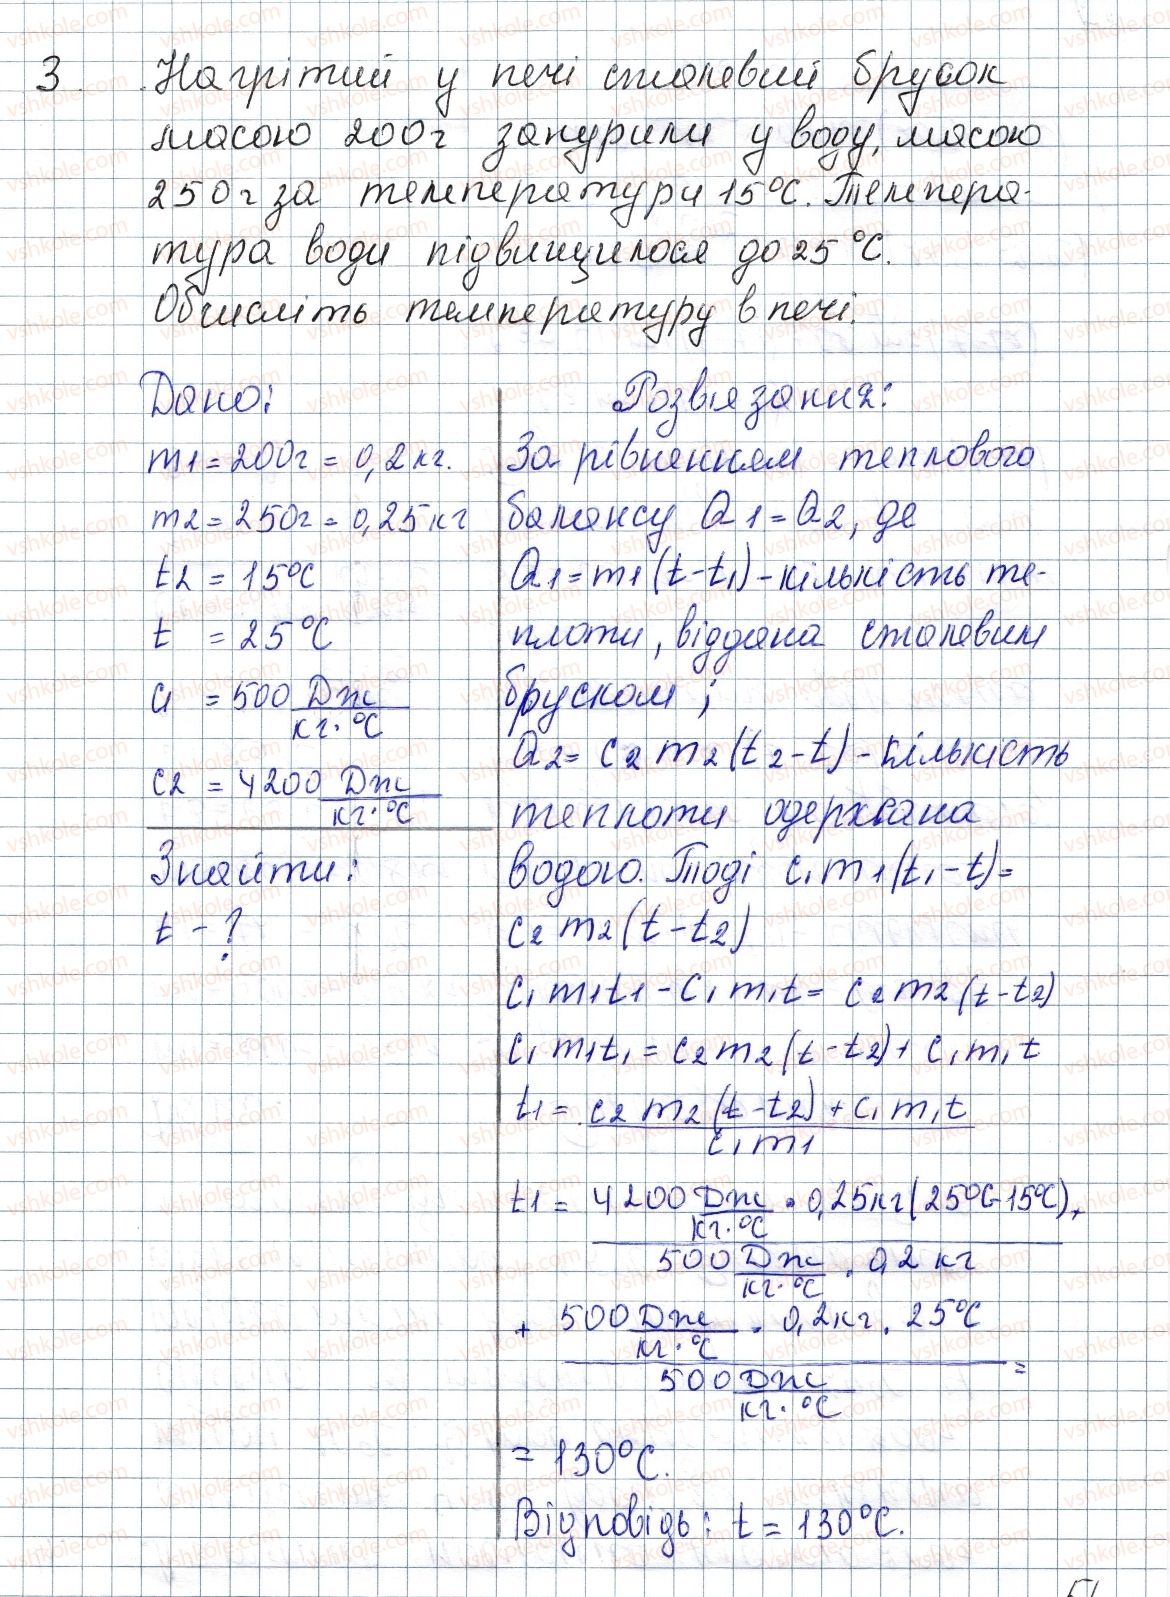 3. Нагрітий у печі сталевий брусок
масою 200г занурили у воду, масою
250г за температури 15°C. Темпера-
тура води підвищилося до 25°C.
Обчисліть температуру в печі.
Дано:
m1 = 200г = 0,2кг.
m2 = 250г = 0,25кг
t2 = 15°C
t = 25°C
c1 = 500 Дж/кг·°C
c2 = 4200 Дж/кг·°C
Знайти:
t - ?
Розв'язання:
За рівнянням теплового
балансу Q1 = Q2, де
Q1 = m1(t-t1) - кількість те-
плоти, віддана сталевим
бруском;
Q2 = c2 m2(t2-t) - кількість
теплоти одержана
водою. Тоді c1 m1(t1-t) =
c2 m2(t-t2)
c1 m1t1 - c1 m1t = c2 m2(t-t2)
c1 m1t1 = c2 m2(t-t2) + c1 m1 t
t1 = c2 m2(t-t2) + c1 m1 t / c1 m1
t1 = 4200 Дж/кг·°C · 0,25кг(25°C-15°C) +
500 Дж/кг·°C · 0,2 кг
+ 500 Дж/кг·°C · 0,2кг · 25°C =
500 Дж/кг·°C
= 130°C.
Відповідь: t = 130°C.
vshkole.com